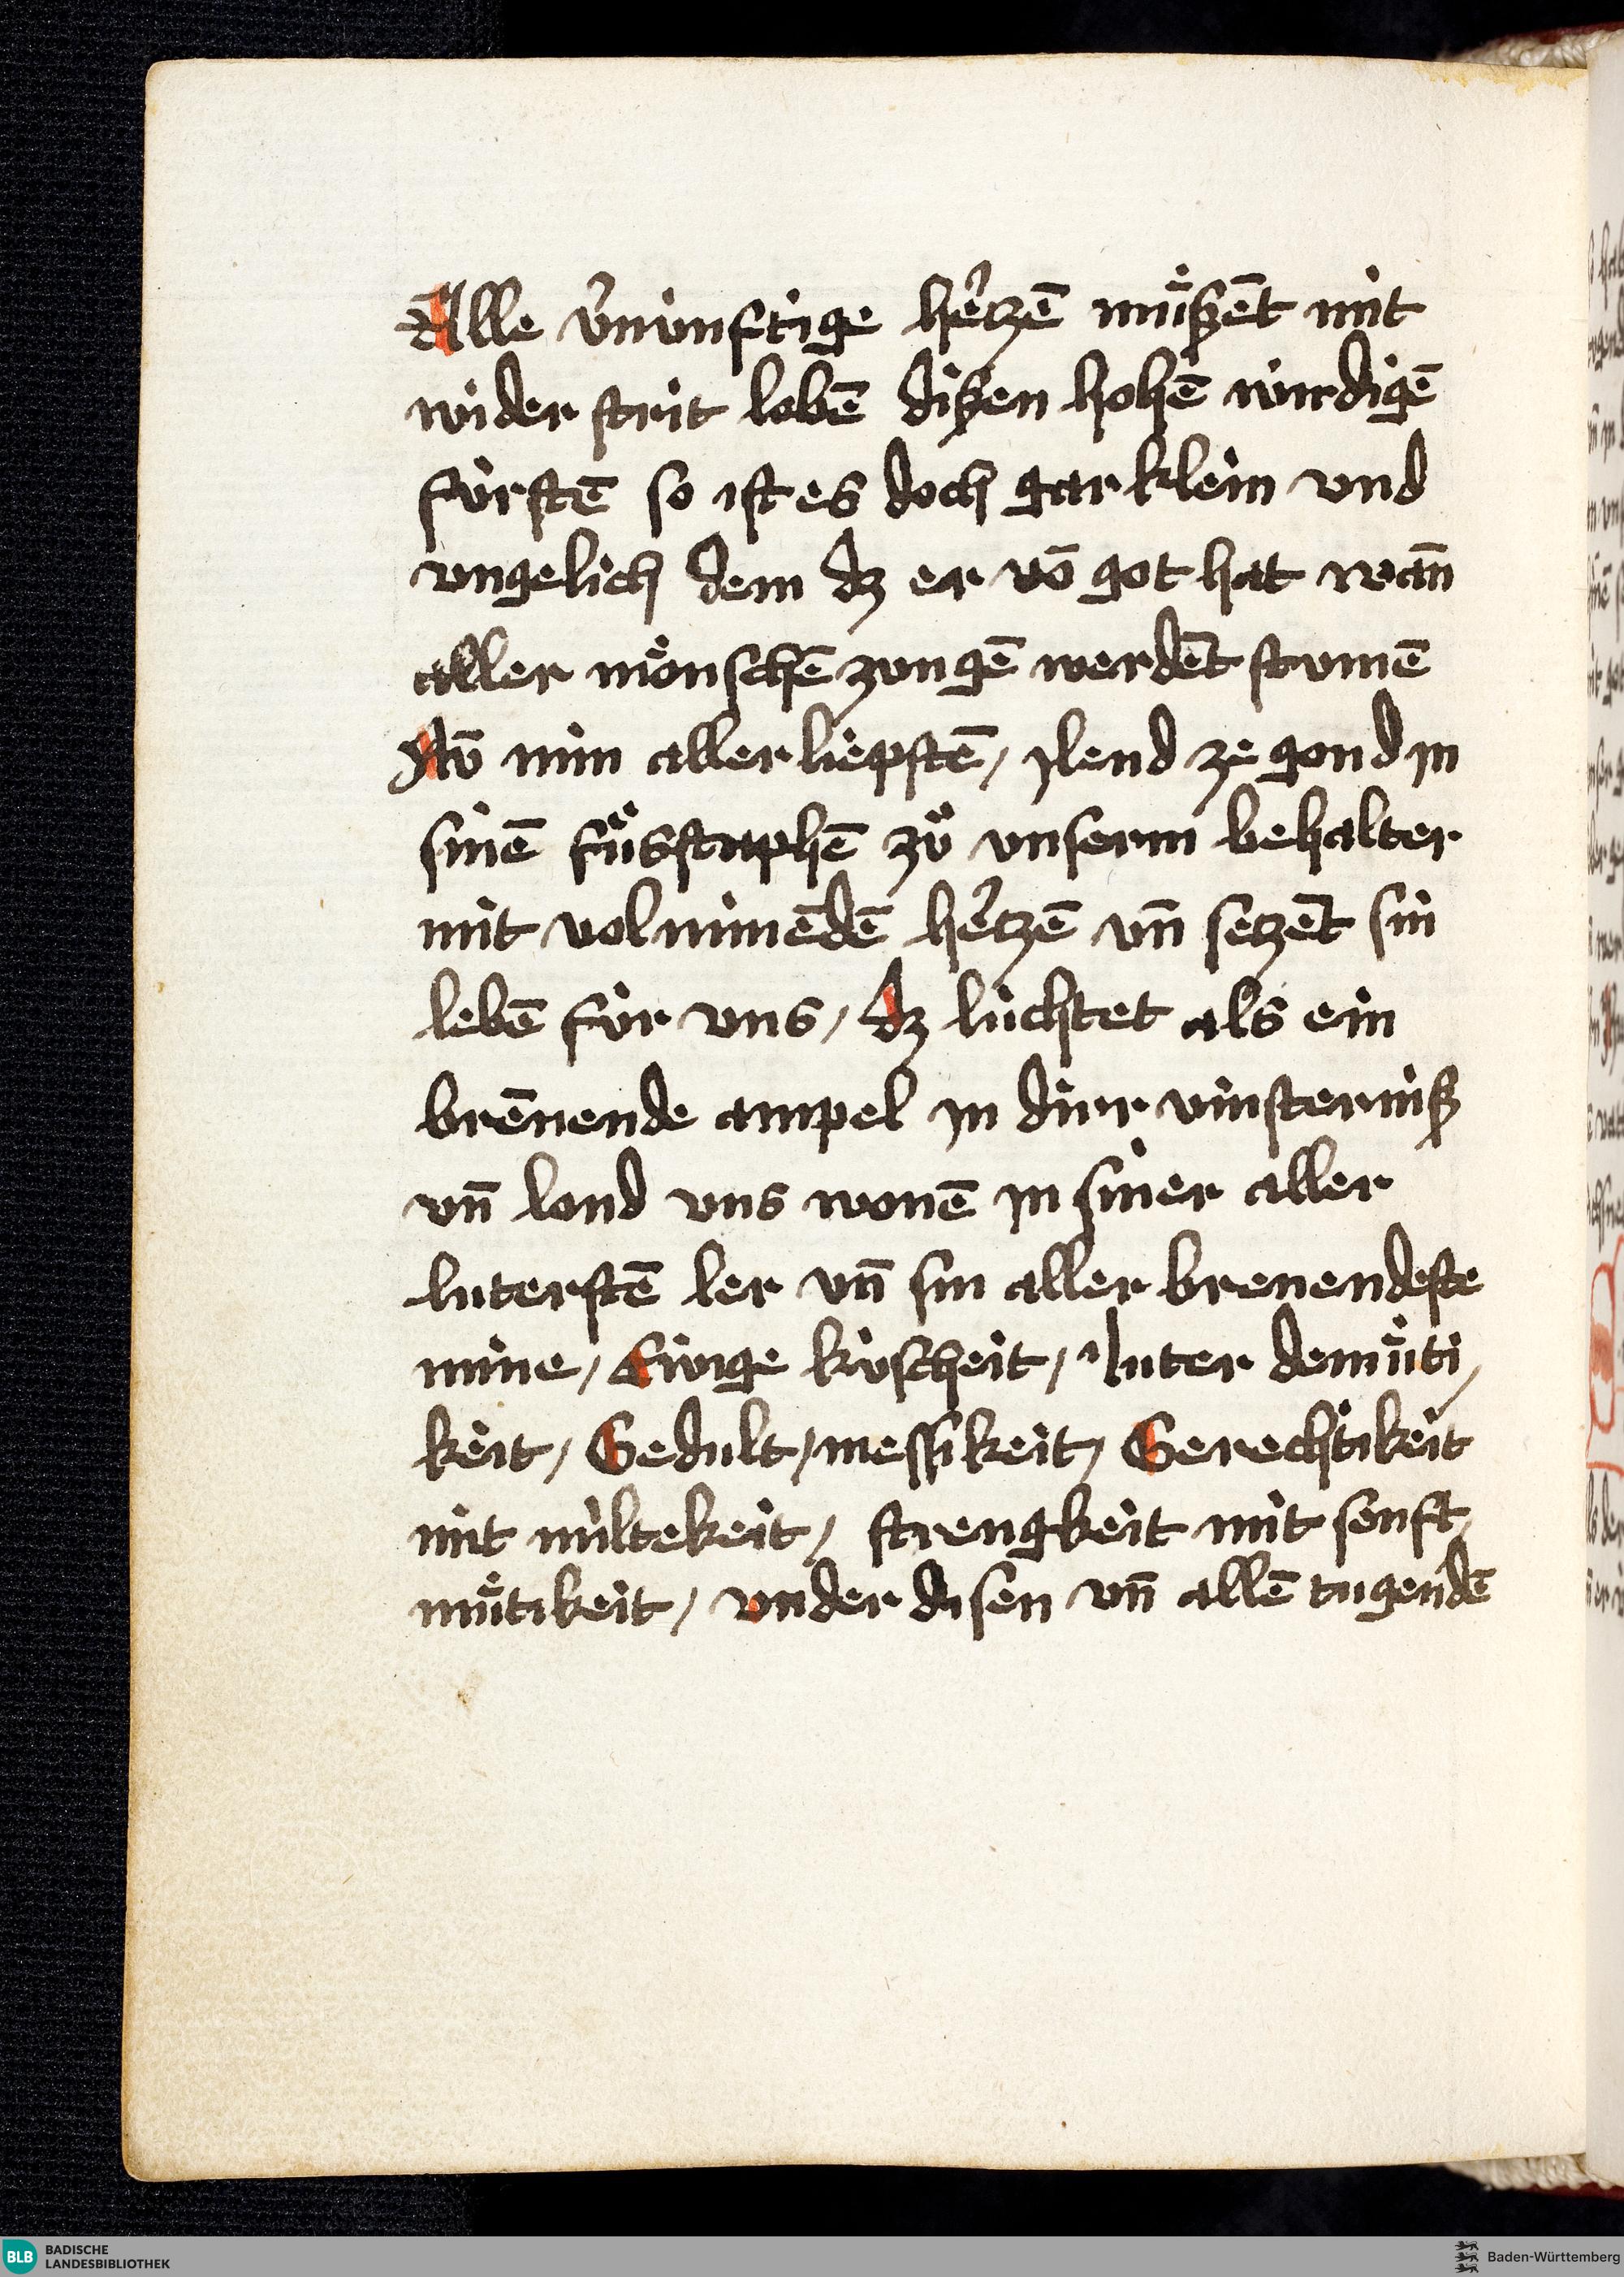 Alle v̉nvnftige hertzē mu̎ßēt mit
wider strit lobē dißen hohē wirdigē
fürstē so ist es doch gar klein vnd
vngelich dem dz er vō got hat wan̄
aller mönschē zvngē werdēt stvmē
Nv̄ min aller liepstē / ylend ze gond in
sinē fu̎sstaphē zv̊ vnserm behalter
mit volnimēdē hertzē vn̄ setzēt sin
lebē für vns / dz lüchtet als ein
brēnende ampel in dirr vinsterniß
vn̄ lond vns wonē in siner aller
luterstē ler vn̄ sin aller brenendeste
mine / Ewige küscheit / luter demu̎ti /
keit / Gedult / messikeit / Gerechtikeit
mit miltekeit / strengkeit mit senft /
mu̎tikeit / vnder disen vn̄ allē tugendē
BLB BADISCHE
LANDESBIBLIOTHEK
Baden-Württemberg